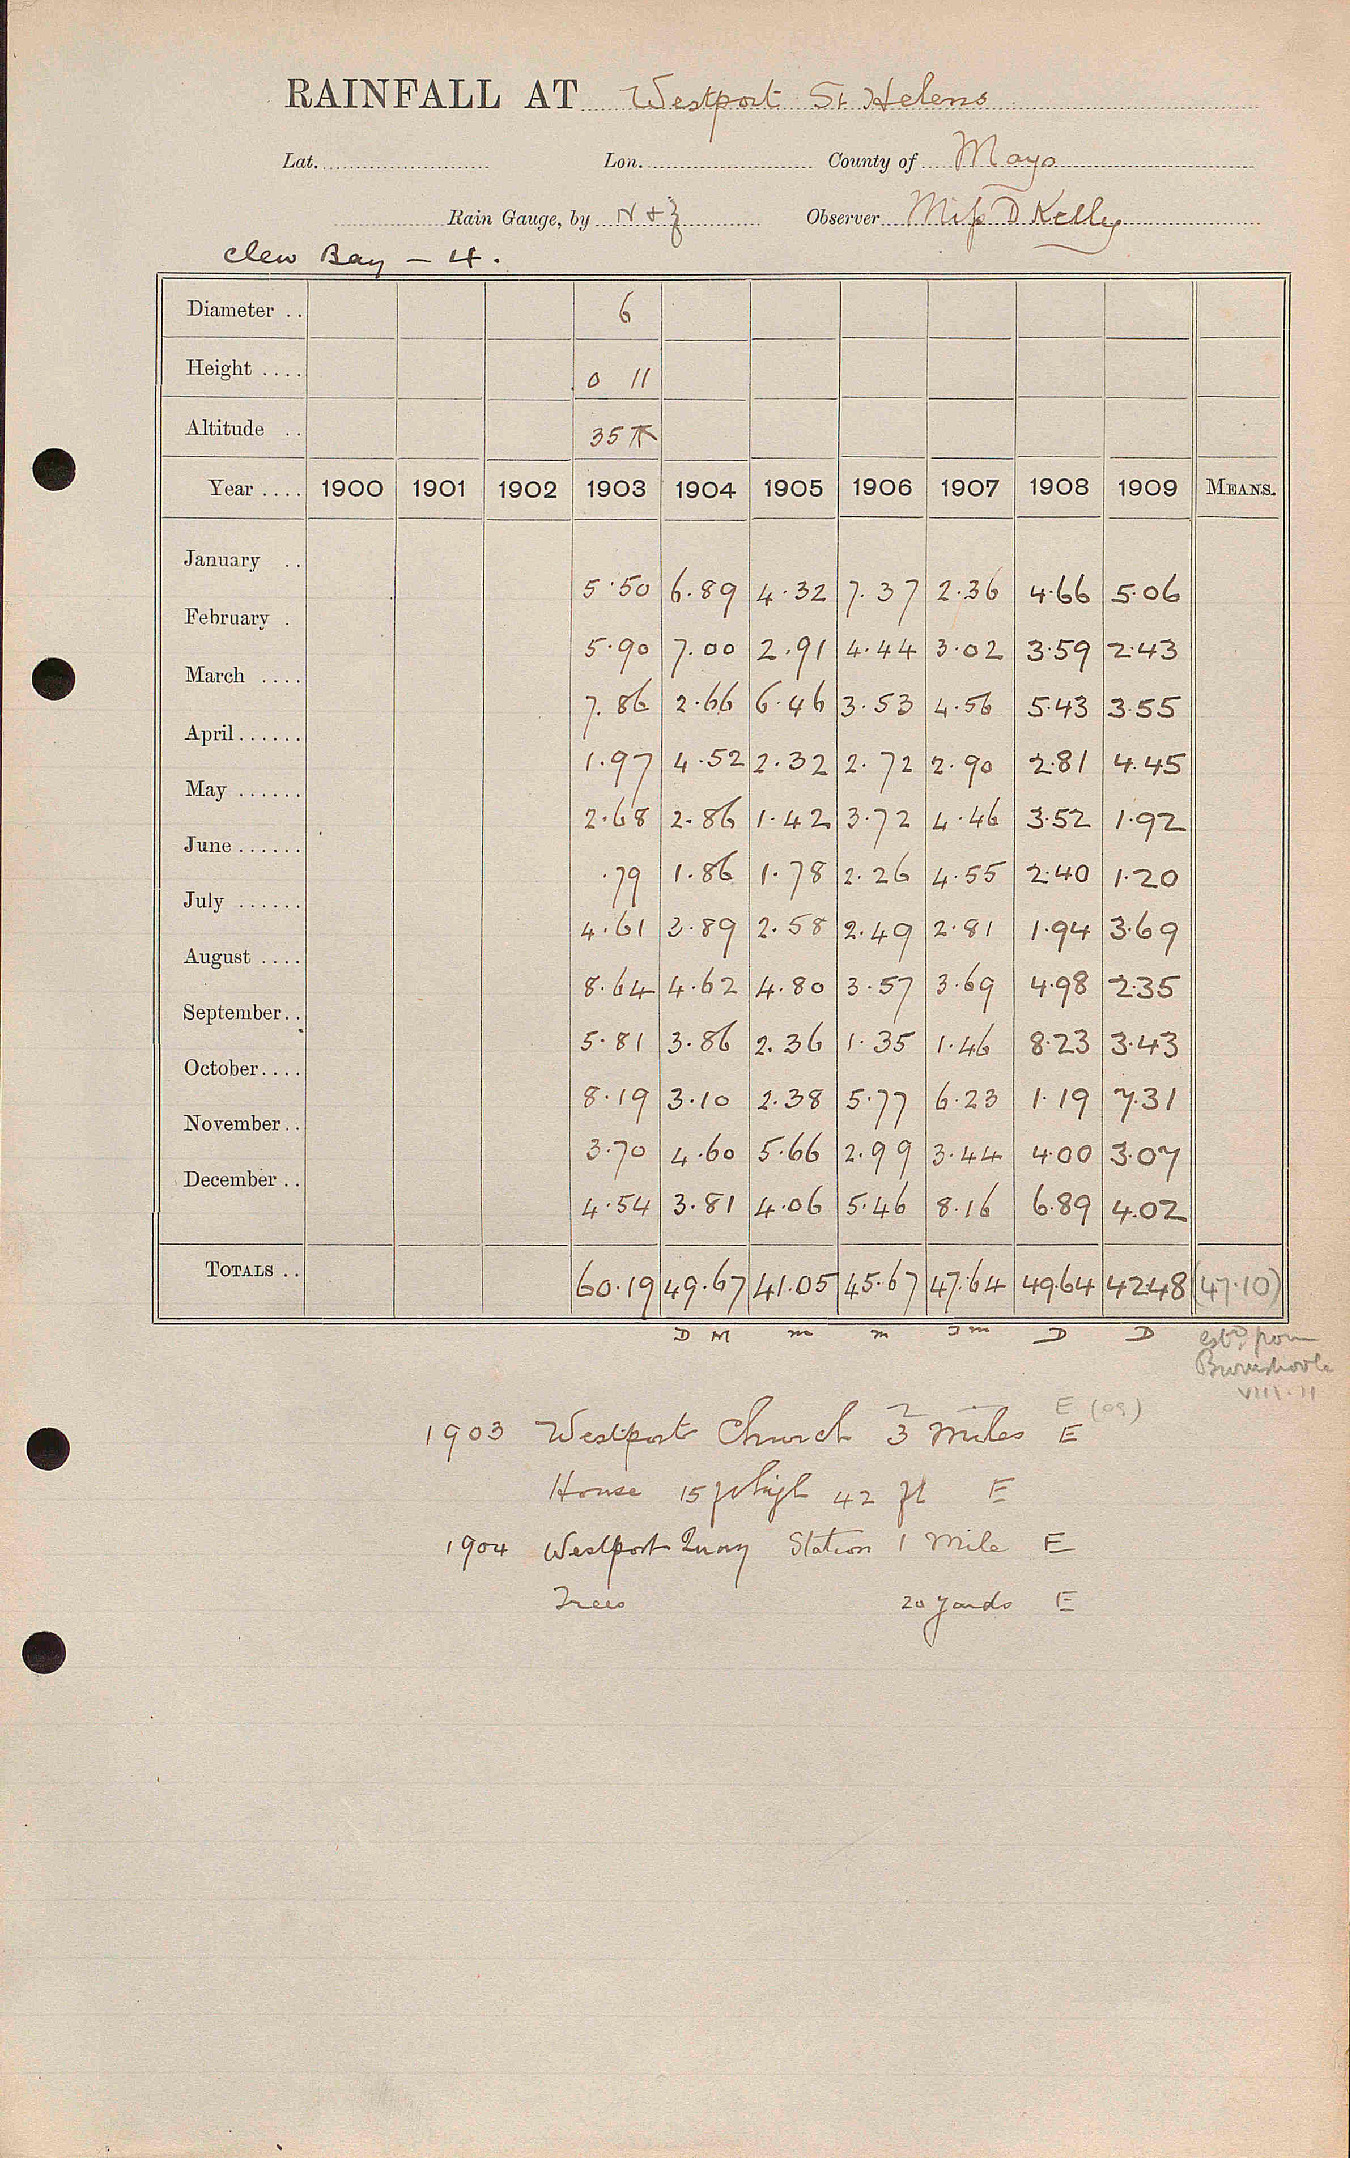 RAINFALL AT Westport St Helens
Lat. Lon. County of Mayo
Rain Gauge, by N & Z Observer Miss D Kelly
Clew Bay – 4.
Diameter .. 6
Height .... 0 11
Altitude .. 35
Year .... 1900 1901 1902 1903 1904 1905 1906 1907 1908 1909 MEANS.
January .. 5.50 6.89 4.32 7.37 2.36 4.66 5.06
February . 5.90 7.00 2.91 4.44 3.02 3.59 2.43
March .... 7.86 2.66 6.46 3.53 4.56 5.43 3.55
April...... 1.97 4.52 2.32 2.72 2.90 2.81 4.45
May ...... 2.68 2.86 1.42 3.72 4.46 3.52 1.92
June...... .79 1.86 1.78 2.26 4.55 2.40 1.20
July ...... 4.61 3.89 2.58 2.49 2.81 1.94 3.69
August .... 8.64 4.62 4.80 3.57 3.69 4.98 2.35
September.. 5.81 3.86 2.36 1.35 1.46 8.23 3.43
October.... 8.19 3.10 2.38 5.77 6.23 1.19 7.31
November.. 3.70 4.60 5.66 2.99 3.44 4.00 3.07
December .. 4.54 3.81 4.06 5.46 8.16 6.89 4.02
TOTALS .. 60.19 49.67 41.05 45.67 47.64 49.64 42.48 (47.10)
D M m m J m D D estd from
VIII.11
E (09)
1903 Westport Church 3 miles E
House 15 ft high 42 ft E
1904 Westport Quay Station 1 Mile E
Trees 20 yards E